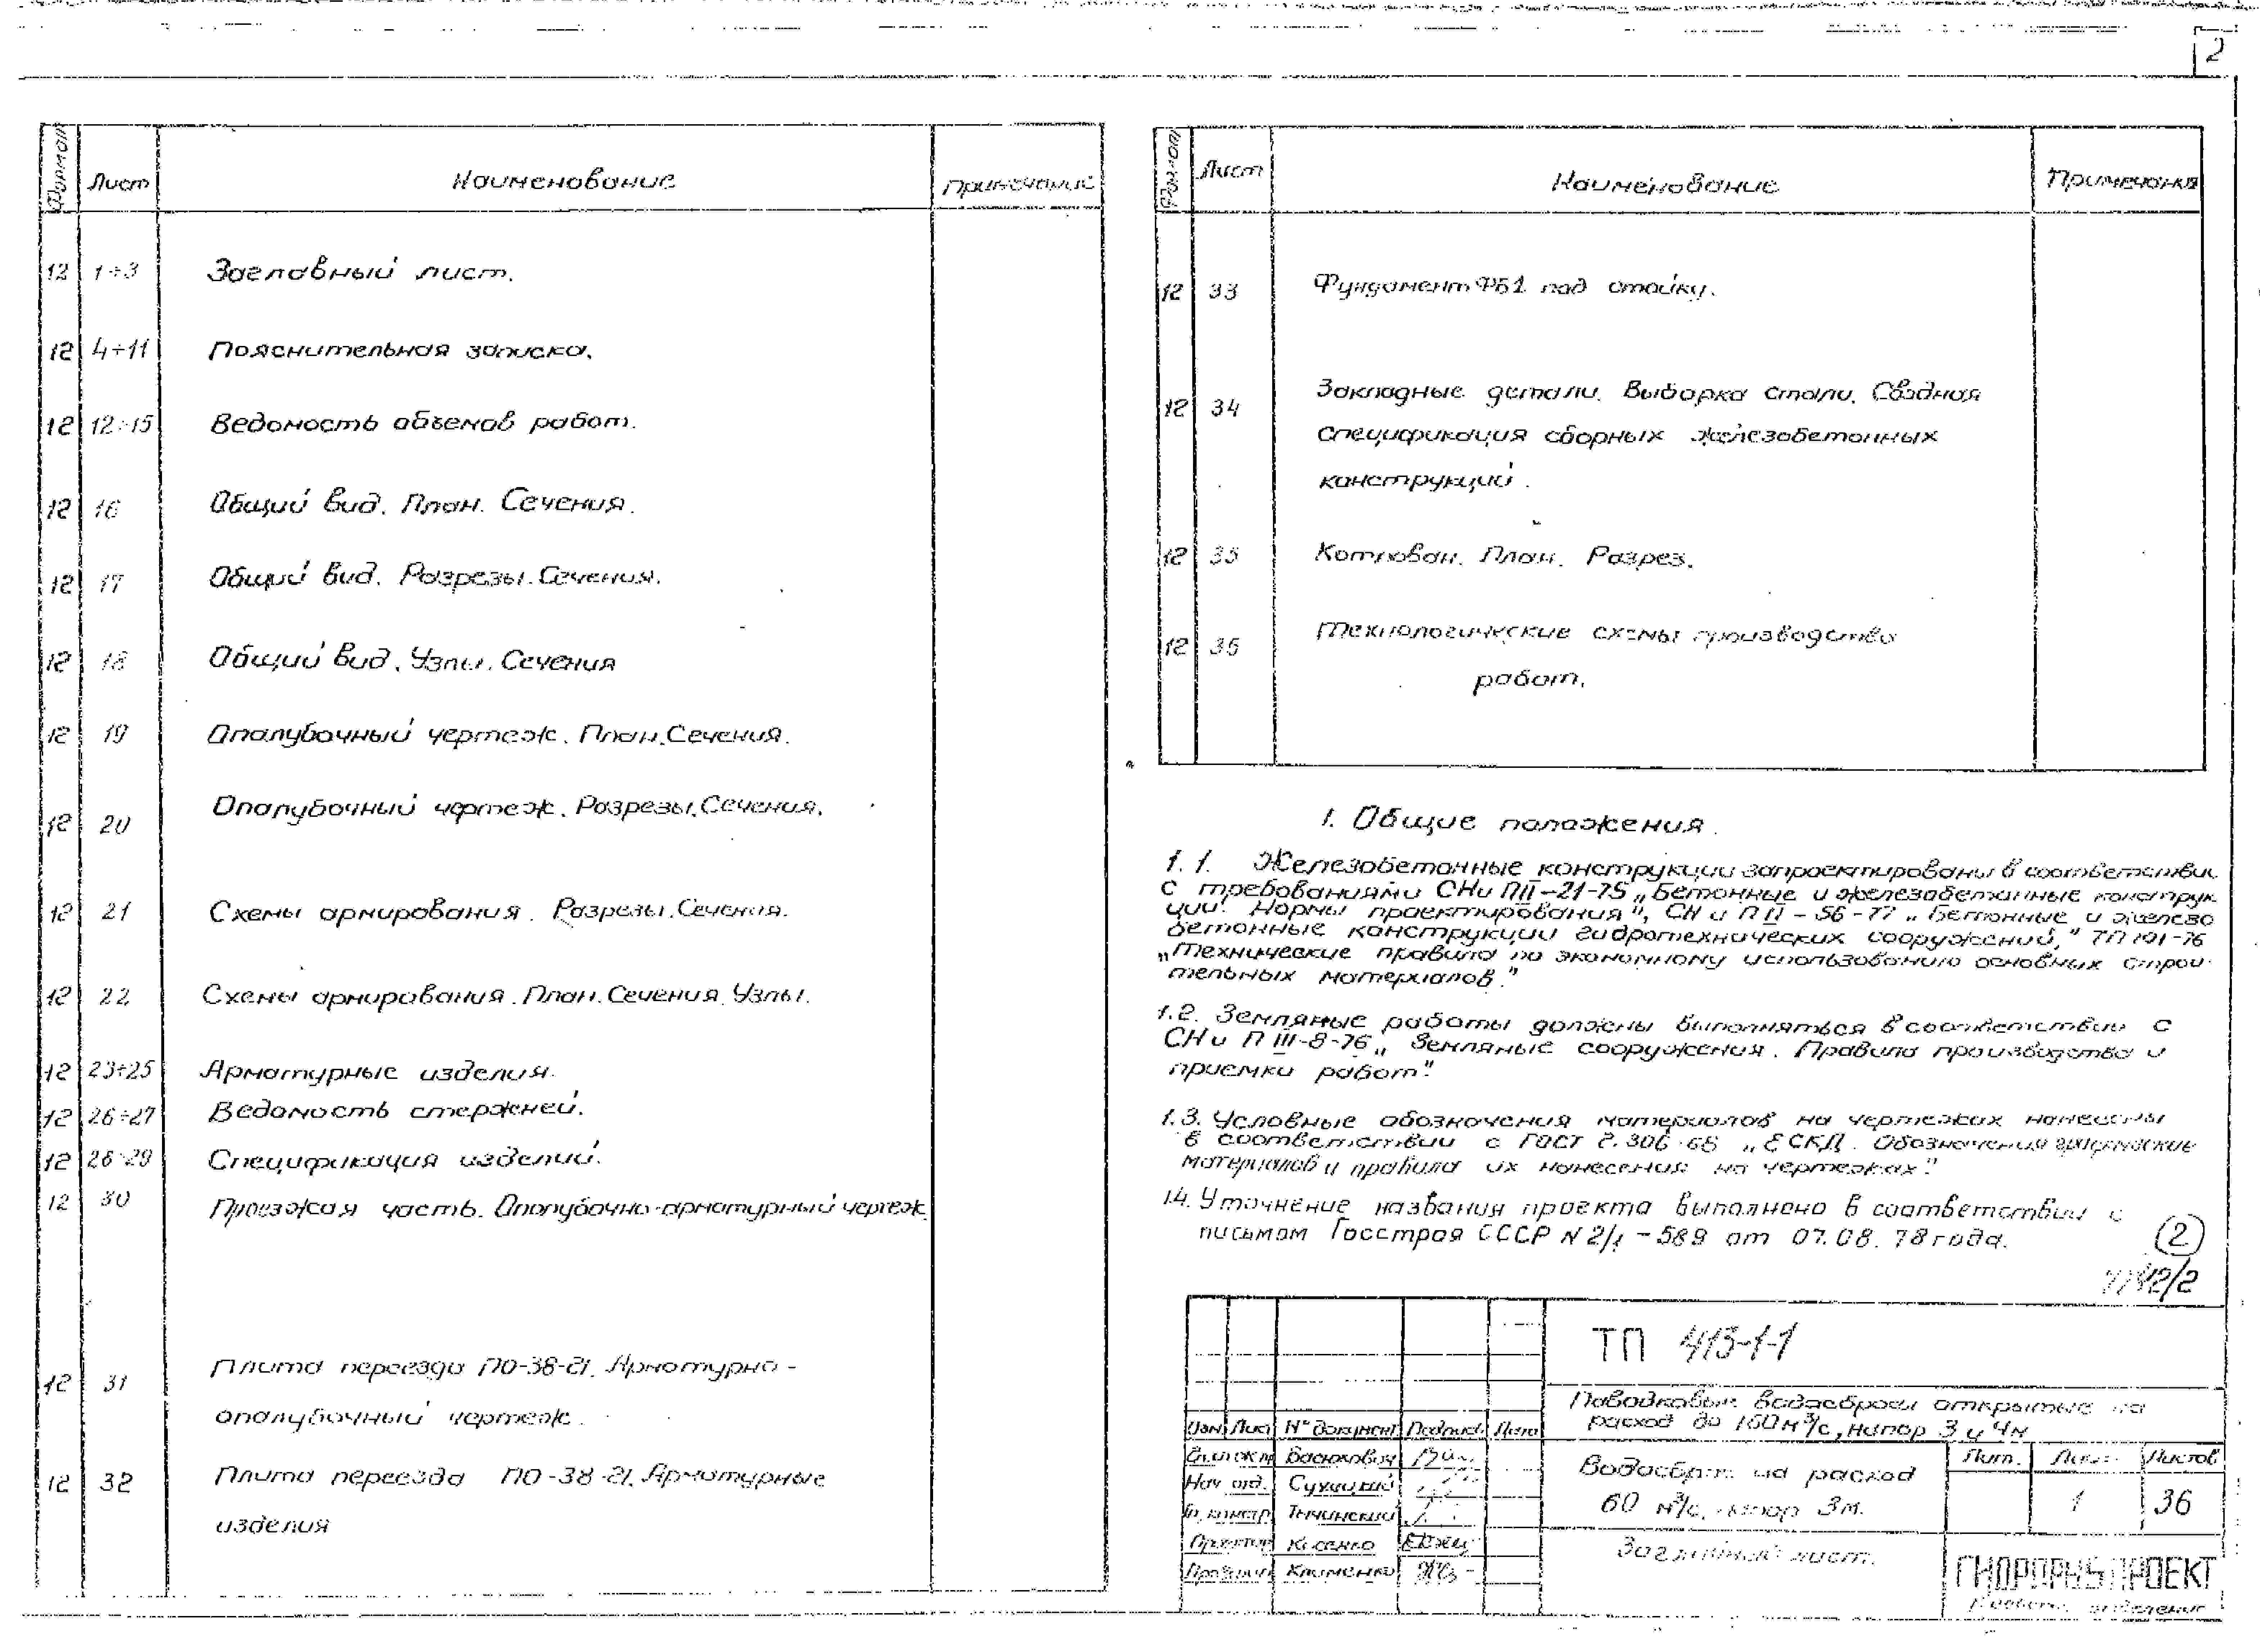 2
Формат Лист Наименование Примечания
12 1÷3 Заглавный лист.
12 4÷11 Пояснительная записка.
12 12÷15 Ведомость объемов работ.
12 16 Общий вид. План. Сечения.
12 17 Общий вид. Разрезы. Сечения.
12 18 Общий вид. Узлы. Сечения
12 19 Опалубочный чертеж. План. Сечения.
12 20 Опалубочный чертеж. Разрезы. Сечения.
12 21 Схемы армирования. Разрезы. Сечения.
12 22 Схемы армирования. План. Сечения. Узлы.
12 23÷25 Арматурные изделия.
12 26÷27 Ведомость стержней.
12 28÷29 Спецификация изделий.
12 30 Проезжая часть. Опалубочно-арматурный чертеж.
12 31 Плита переезда ПО-38-21. Арматурно-
опалубочный чертеж.
12 32 Плита переезда ПО-38-21. Арматурные
изделия
Формат Лист Наименование Примечания
12 33 Фундамент ФБ1 под стойку.
12 34 Закладные детали. Выборка стали. Сводная
спецификация сборных железобетонных
конструкций.
12 35 Котлован. План. Разрез.
12 36 Технологические схемы производства
работ.
1. Общие положения.
1.1. Железобетонные конструкции запроектированы в соответствии
с требованиями СНиП II-21-75 „Бетонные и железобетонные конструк
ции. Нормы проектирования", СНиП II-56-77 „Бетонные и железо
бетонные конструкции гидротехнических сооружений," ТП 101-76
„Технические правила по экономному использованию основных строи-
тельных материалов."
1.2. Земляные работы должны выполняться в соответствии с
СНиП III-8-76 „Земляные сооружения. Правила производства и
приемки работ".
1.3. Условные обозначения материалов на чертежах нанесены
в соответствии с ГОСТ 2.306-68 „ЕСКД. Обозначения графические
материалов и правила их нанесения на чертежах".
1.4. Уточнение названия проекта выполнено в соответствии с
письмом Госстроя СССР N 2/1-589 от 07.08.78 года.
(2)
ТП 413-1-1
Паводковые водосбросы открытые на
расход до 160 м³/с, напор 3 и 4м
Изм. Лист N° документ. Подпись Дата
Нач. отд. Сухицкий
Гл. констр. Тычинский
Клименко
Водосброс на расход
60 м³/с, напор 3м.
Лит. Лист Листов
1 36
Заглавный лист.
отделение